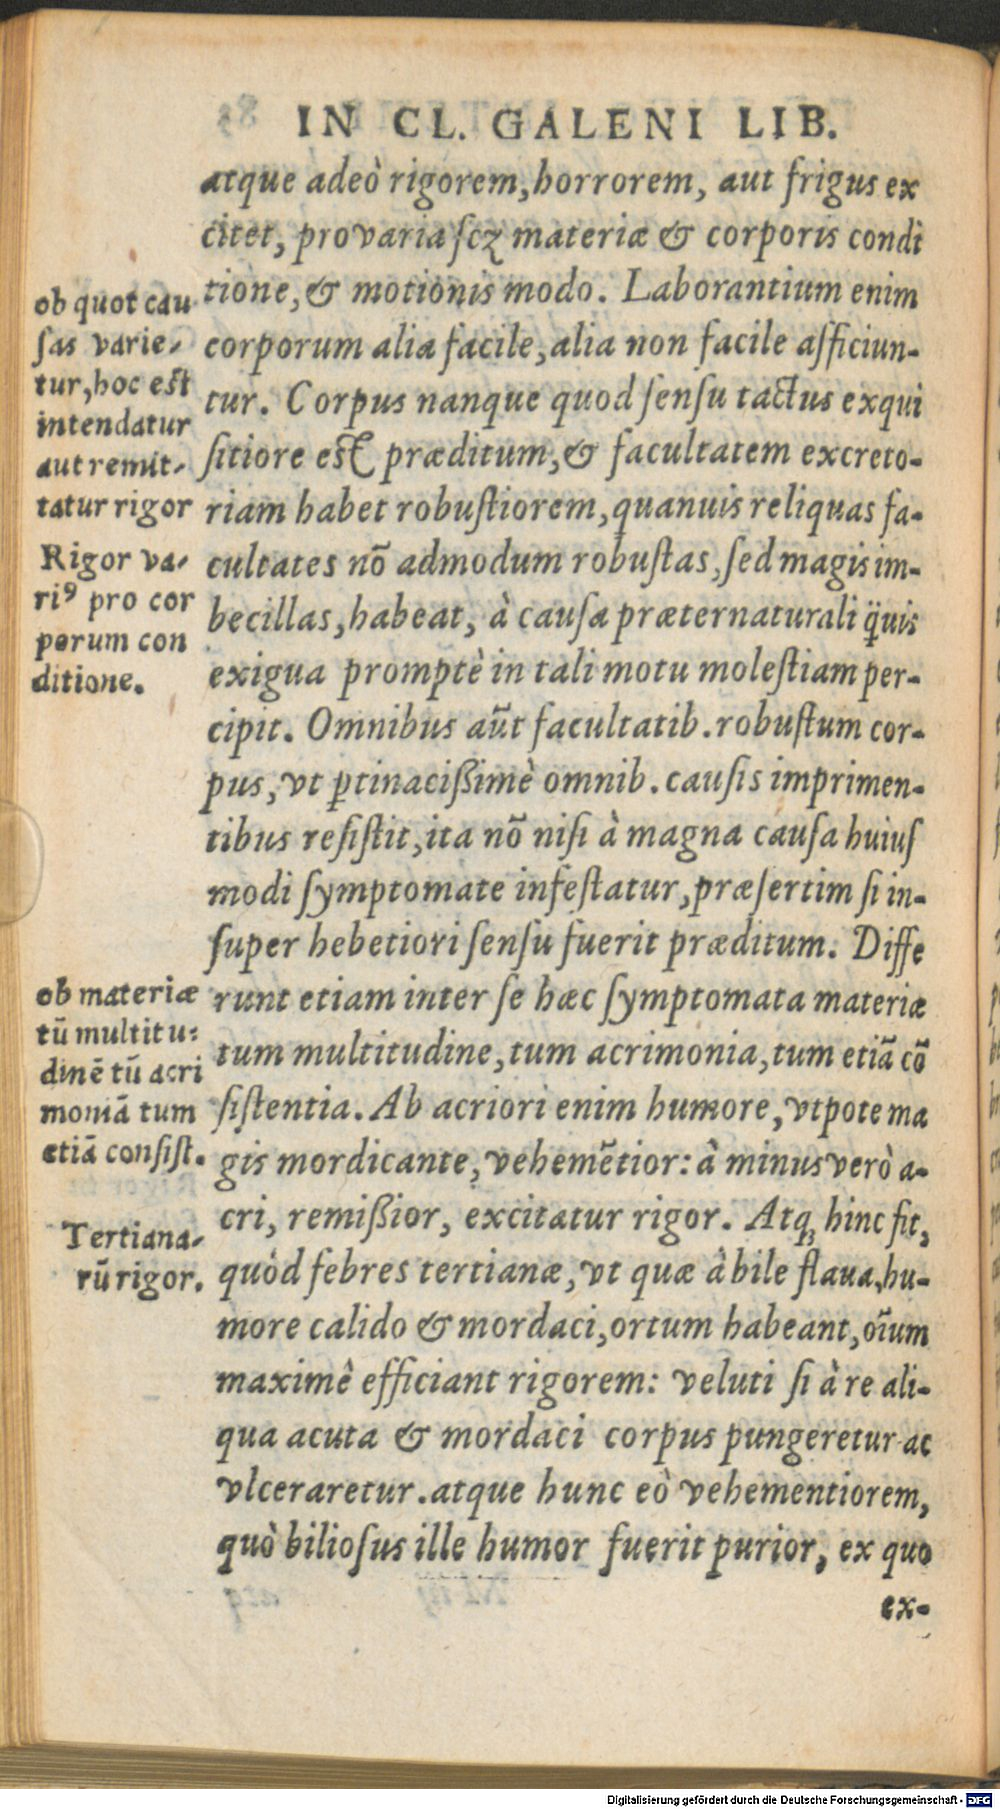 IN CL. GALENI LIB.
atque adeò rigorem, horrorem, aut frigus ex
citet, pro varia ſcꝫ materiæ & corporis condi
tione, & motionis modo. Laborantium enim
corporum alia facile, alia non facile afficiun-
tur. Corpus nanque quod ſenſu tactus exqui
ſitiore eſt præditum, & facultatem excreto-
riam habet robuſtiorem, quanuis reliquas fa-
cultates nō admodum robuſtas, ſed magis im-
becillas, habeat, à cauſa præternaturali q̈uis
exigua promptè in tali motu moleſtiam per-
cipit. Omnibus aūt facultatib. robuſtum cor-
pus, vt ꝑtinacißimè omnib. cauſis imprimen-
tibus reſiſtit, ita nō niſi à magna cauſa huiuſ
modi ſymptomate infeſtatur, præſertim ſi in-
ſuper hebetiori ſenſu fuerit præditum. Diffe
runt etiam inter ſe hæc ſymptomata materiæ
tum multitudine, tum acrimonia, tum etiā cō
ſiſtentia. Ab acriori enim humore, vtpote ma
gis mordicante, vehemētior: à minus verò a-
cri, remißior, excitatur rigor. Atqꝫ hinc fit,
quòd febres tertianæ, vt quæ à bile flaua, hu-
more calido & mordaci, ortum habeant, oīum
maximè efficiant rigorem: veluti ſi à re ali-
qua acuta & mordaci corpus pungeretur ac
vlceraretur. atque hunc eò vehementiorem,
quò bilioſus ille humor fuerit purior, ex quo
ex-
ob quot cau
ſas varie-
tur, hoc eſt
intendatur
aut remit-
tatur rigor
Rigor va-
riꝰ pro cor
porum con
ditione.
ob materiæ
tū multitu-
dinē tū acri
moniā tum
etiā conſiſt.
Tertiana-
rū rigor.
Digitalisierung gefördert durch die Deutsche Forschungsgemeinschaft - DFG